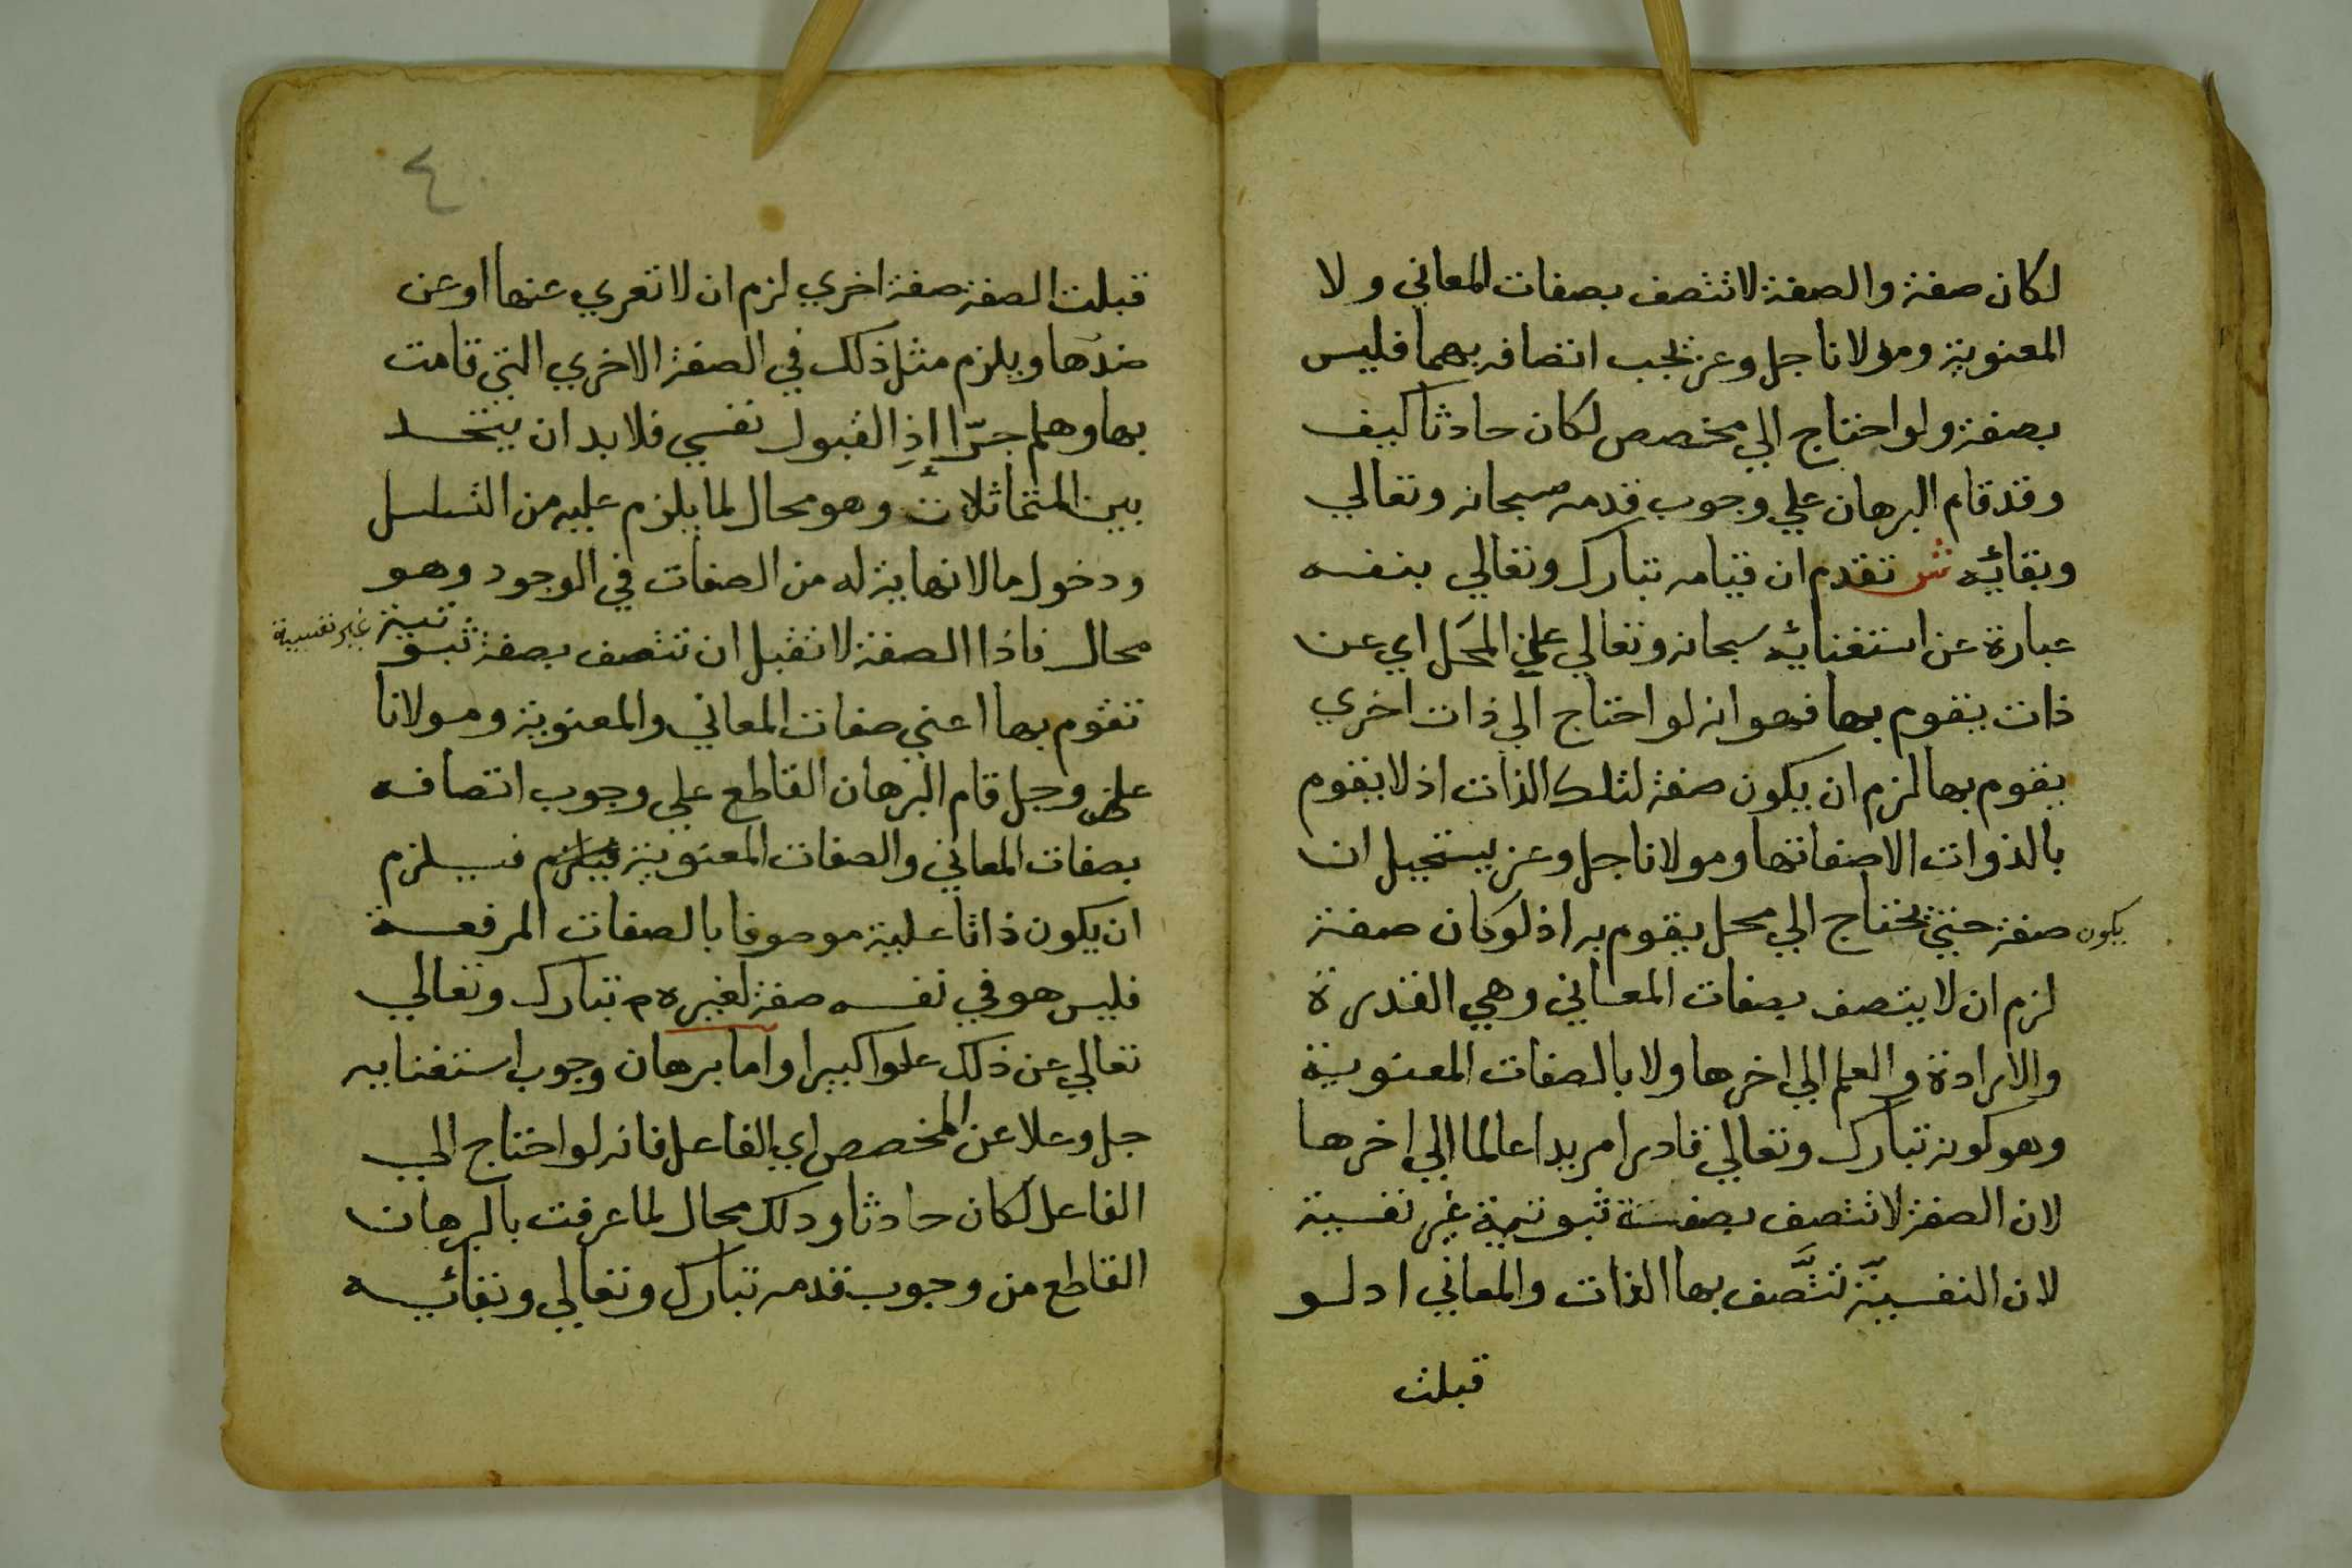 لكان صفة والصفة لا تتصف بصفات المعاني ولا
المعنوية ومولانا جل وعز يجب اتصافه بهما فليس
بصفة ولو احتاج الي مخصص لكان حادثا كيف
وقد قام البرهان علي وجوب قدمه سبحانه وتعالي
وبقائه ش تقدم ان قيامه تبارك وتعالي بنفسه
عبارة عن استغنائه سبحانه وتعالي عن المحل اي عن
ذات يقوم بها فهو انه لو احتاج الي ذات اخري
يقوم بها لزم ان يكون صفة لتلك الذات اذ لا يقوم
بالذوات الا صفاتها ومولانا جل وعز يستحيل ان
يكون صفة حتي يحتاج الي محل يقوم به اذ لو كان صفة
لزم ان لا يتصف بصفات المعاني وهي القدرة
والارادة والعلم الي اخرها ولا بالصفات المعنوية
وهو كونه تبارك وتعالي قادرا مريدا عالما الي اخرها
لان الصفة لا تتصف بصفة ثبوتية غير نفسية
لان النفسية تتَّصف بها الذات والمعاني اد لو
قبلت
٤
قبلت الصفة صفة اخري لزم ان لا تعري عنها او عن
ضدها ويلزم مثل ذلك في الصفة الاخري التي قامت
بها وهلم جرّا اذِ القبول نفسي فلا بد ان يتحد
بين المتماثلات وهو محال لما يلزم عليه من التسلسل
ودخول ما لا نهاية له من الصفات في الوجود وهو
محال فاذا الصفة لا تقبل ان تتصف بصفة ثبوتية غير نفسية
تقوم بها اعني صفات المعاني والمعنوية ومولانا
عز وجل قام البرهان القاطع علي وجوب اتصافه
بصفات المعاني والصفات المعنوية فيلزم فيلزم
ان يكون ذاتا علية موصوفا بالصفات المرفعة
فليس هو في نفسه صفة لغيره م تبارك وتعالي
تعالي عن ذلك علوا كبيرا واما برهان وجوب استغنايه
جل وعلا عن المخصص اي الفاعل فانه لو احتاج الي
الفاعل لكان حادثا ودلك محال لما عرفت بالبرهان
القاطع من وجوب قدمه تبارك وتعالي وبقائه